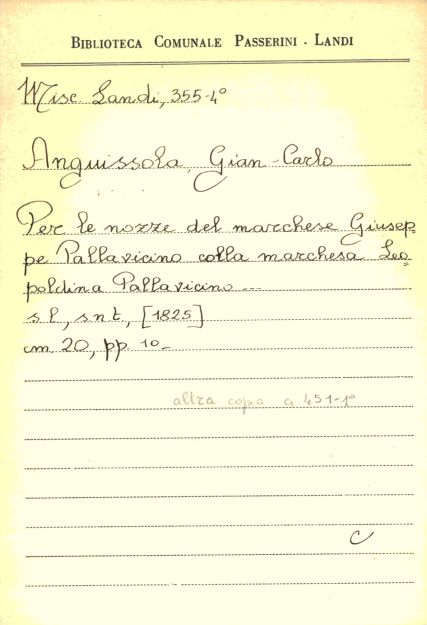 BIBLIOTECA COMUNALE PASSERINI - LANDI
Misc. Landi, 355-4°
Anguissola, Gian-Carlo
Per le nozze del marchese Giusep=
pe Pallavicino colla marchesa Leo=
poldina Pallavicino...
s l, s n t, [1825]
cm. 20, pp. 10_
altra copia a 451-1°
C